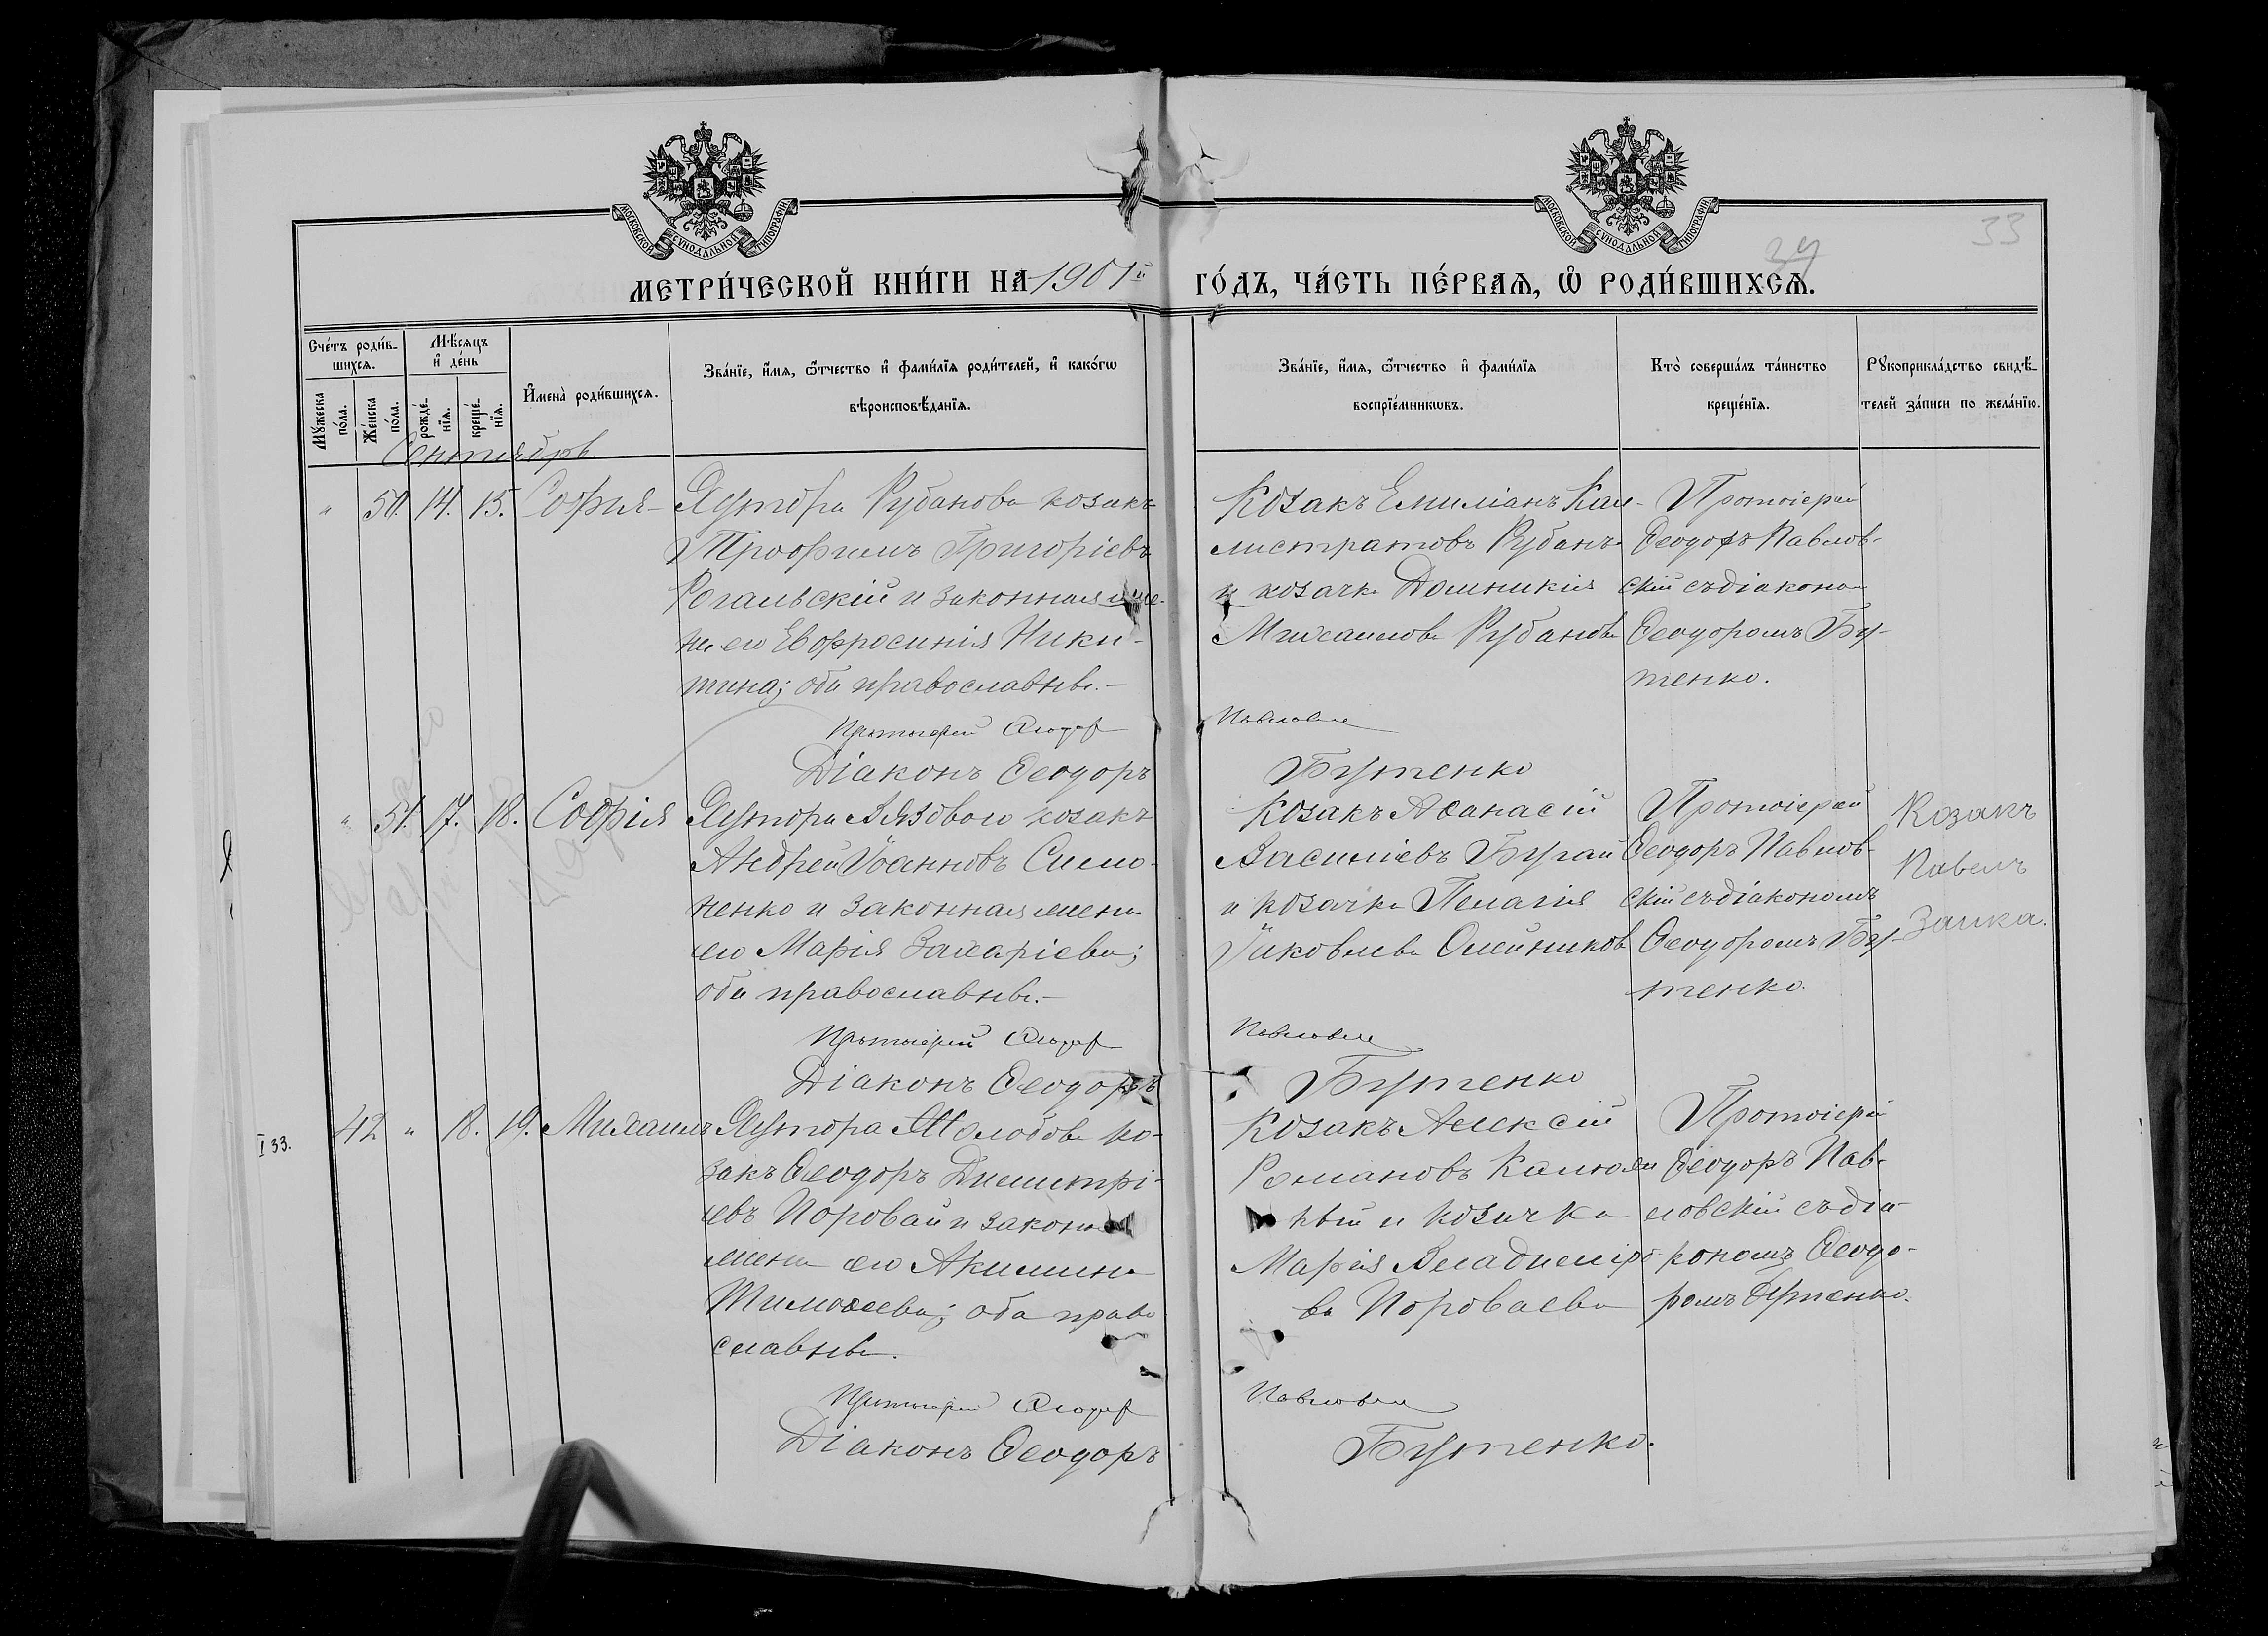 МОСКОВСКОЙ СѴНОДАЛЬНОЙ ТИПОГРАФІИ
МОСКОВСКОЙ СѴНОДАЛЬНОЙ ТИПОГРАФІИ
33
34
МЕТРИ́ЧЕСКОЙ КНИ́ГИ НА 1901й ГО́ДЪ, ЧА́СТЬ ПЕ́РВАѦ, Ѡ҆ РОДИ́ВШИХСѦ.
Сче́тъ роди́в-
шихсѧ.
Мꙋ́жеска по́ла.
Же́нска по́ла.
Мѣ́сѧцъ
и҆ де́нь
рожде́-
нїѧ.
креще́-
нїѧ.
И҆мена̀ роди́вшихсѧ.
Зва́нїе, и҆́мѧ, ѻ҆́тчество и҆ фами́лїѧ роди́телей, и҆ како́гѡ
вѣроисповѣ́данїѧ.
Зва́нїе, и҆́мѧ, ѻ҆́тчество и҆ фами́лїѧ
воспрїе́мникѡвъ.
Кто̀ соверша́лъ та́инство
креще́нїѧ.
Рꙋкоприкла́дство свидѣ́-
телей за́писи по жела́нїю.
Сентябрь
" 50. 14. 15. София
Хутора Рубанова козакъ
Трофимъ Григоріевъ
Рогальскій и законная же-
на его Евфросинія Ники-
тина; оба православные.
Протоіерей Ѳеодоръ
Діаконъ Ѳеодоръ
Козакъ Емиліанъ Кал-
листратовъ Рубанъ
и козачка Домникія
Михаилова Рубанова
Павловскій
Бутенко
Протоіерей
Ѳеодоръ Павлов-
скій съ діакономъ
Ѳеодоромъ Бу-
тенко.
" 51. 17. 18. Софія
Хутора Вязоваго козакъ
Андрей Іоанновъ Симо-
ненко и законная жена
его Марія Захаріева;
оба православные.
Протоіерей Ѳеодоръ
Діаконъ Ѳеодоръ
Козакъ Аѳанасій
Василіевъ Бугай
и козачка Пелагія
Іаковлева Олейникова
Павловскій
Бутенко
Протоіерей
Ѳеодоръ Павлов-
скій съ діакономъ
Ѳеодоромъ Бу-
тенко.
Козакъ
Павелъ
Заика.
І 33.
42 " 18. 19. Михаилъ
Хутора Жолобова ко-
закъ Ѳеодоръ Димитрі-
евъ Поровай и законная
жена его Акилина
Тимоѳеева; оба право
славные.
Протоіерей Ѳеодоръ
Діаконъ Ѳеодоръ
Козакъ Алексій
Романовъ
ный и козачка
Марія Владиміро-
ва Пороваева
Павловскій
Бутенко.
Протоіерей
Ѳеодоръ Пав-
ловскій съ діа-
кономъ Ѳеодо-
ромъ Бутенко.